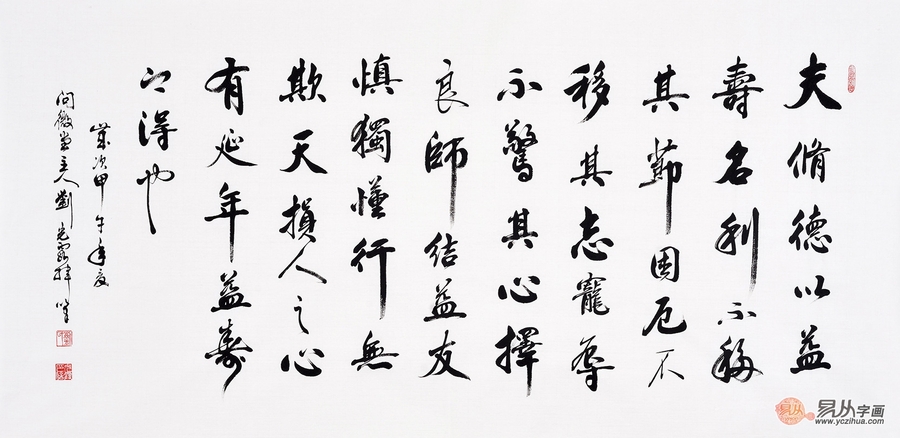 夫脩德以益
壽名利不移
其節困厄不
移其志寵辱
不驚其心擇
良師結益友
慎獨慬行無
欺天損人之心
有延年益壽
之得也
歲次甲午年夏
問微堂主人劉光霞
易从
易从字画
www.yczihua.com